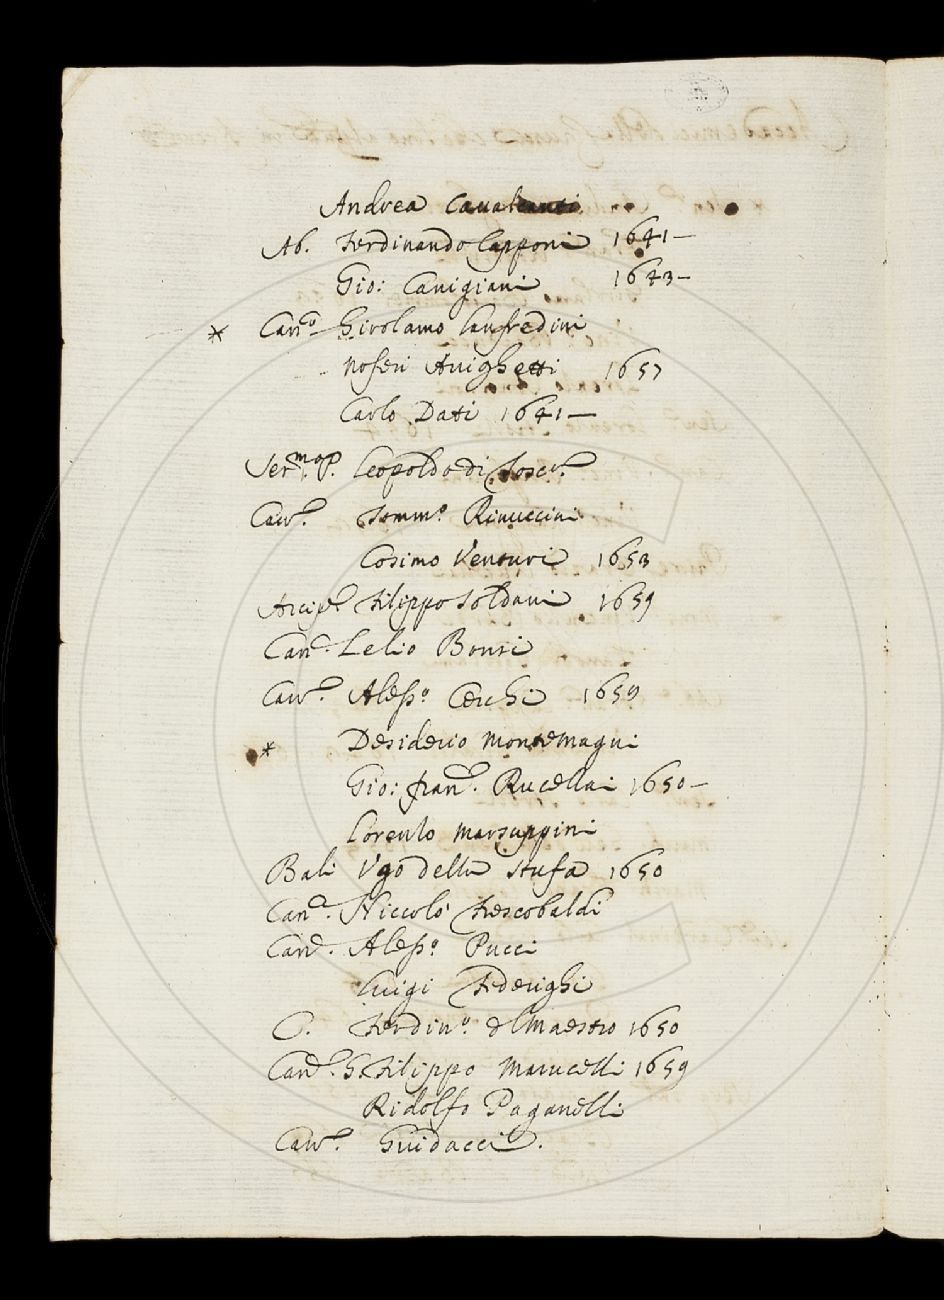 Andrea Caualcanti
Ab. Ferdinando Capponi 1641 —
Gio: Canigiani 1643 —
* Can.co Girolamo Lanfredini
Noferi Auighetti 1657
Carlo Dati 1641 —
Ser.mo P. Leopoldo di Tosc.a
Cav.r Tomm.o Rinuccini
Cosimo Venturi 1653
Arcip.e Filippo Soldani 1659
Can.co Lelio Bonsi
Cav.r Aless.o Cerchi 1659
* Desiderio Montemagni
Gio: Fran.co Rucellai 1650 —
Lorenzo Marsuppini
Bali Vgo della Stufa 1650
Can.co Niccolò Frescobaldi
Can.co Aless.o Pucci
Luigi Federighi
C. Ferdin.o del Maestro 1650
Can.co G. Filippo Marucelli 1659
Ridolfo Paganelli
Cav.r Guidacci.